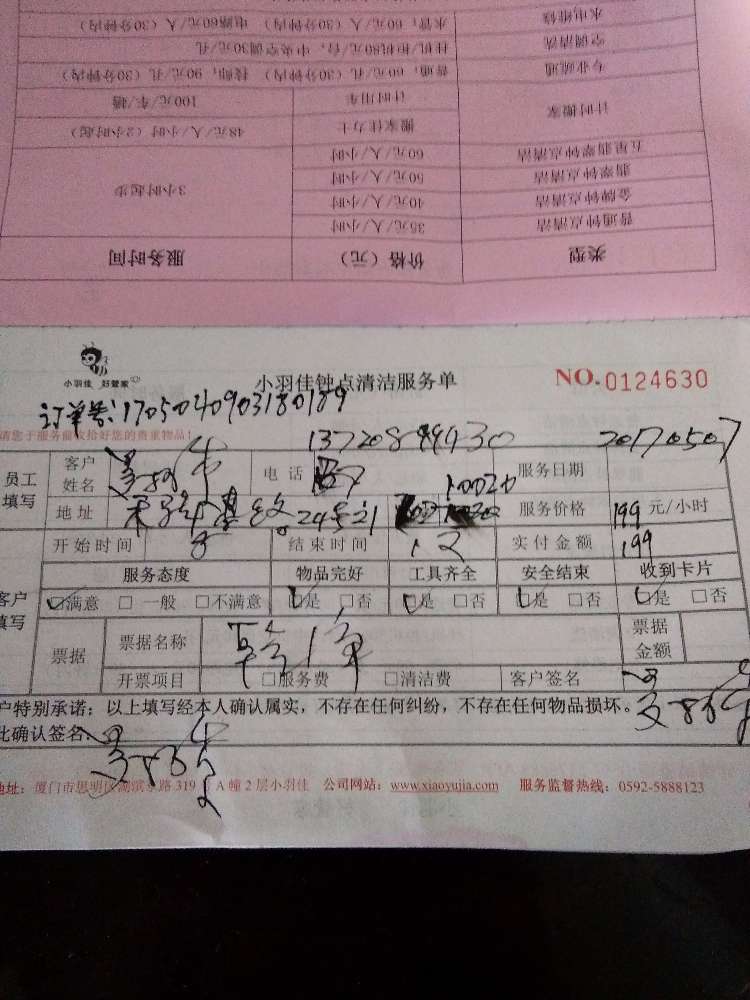 水电维修 水管：60元/人（30分钟内） 电路60元/人（30分钟内）
空调清洗 挂机/柜机80元/台，中央空调30元/孔
专业疏通 普通，60元/孔（30分钟内） 技师，90元/孔（30分钟内）
计时搬家 计时用车 100元/车/趟
搬家佳力士 48元/人/小时（2小时起）
五星翡翠钟点清洁 60元/人/小时
翡翠钟点清洁 50元/人/小时 3小时起步
金牌钟点清洁 40元/人/小时
普通钟点清洁 35元/人/小时
类型 价格（元） 服务时间
小羽佳 好管家 小羽佳钟点清洁服务单 NO.0124630
订单号：1705040903180189
请您于服务前收拾好您的贵重物品！
员工填写 客户姓名 电话 服务日期 20170507
地址 24号 服务价格 199 元/小时
开始时间 8 结束时间 12 实付金额 199
服务态度 物品完好 工具齐全 安全结束 收到卡片
客户填写 ☑满意 □一般 □不满意 ☑是 □否 ☑是 □否 ☑是 □否 ☑是 □否
票据 票据名称 票据金额
开票项目 □服务费 □清洁费 客户签名
户特别承诺：以上填写经本人确认属实，不存在任何纠纷，不存在任何物品损坏。
此确认签名
地址：厦门市思明区湖滨 路319 A幢2层小羽佳 公司网站：www.xiaoyujia.com 服务监督热线：0592-5888123